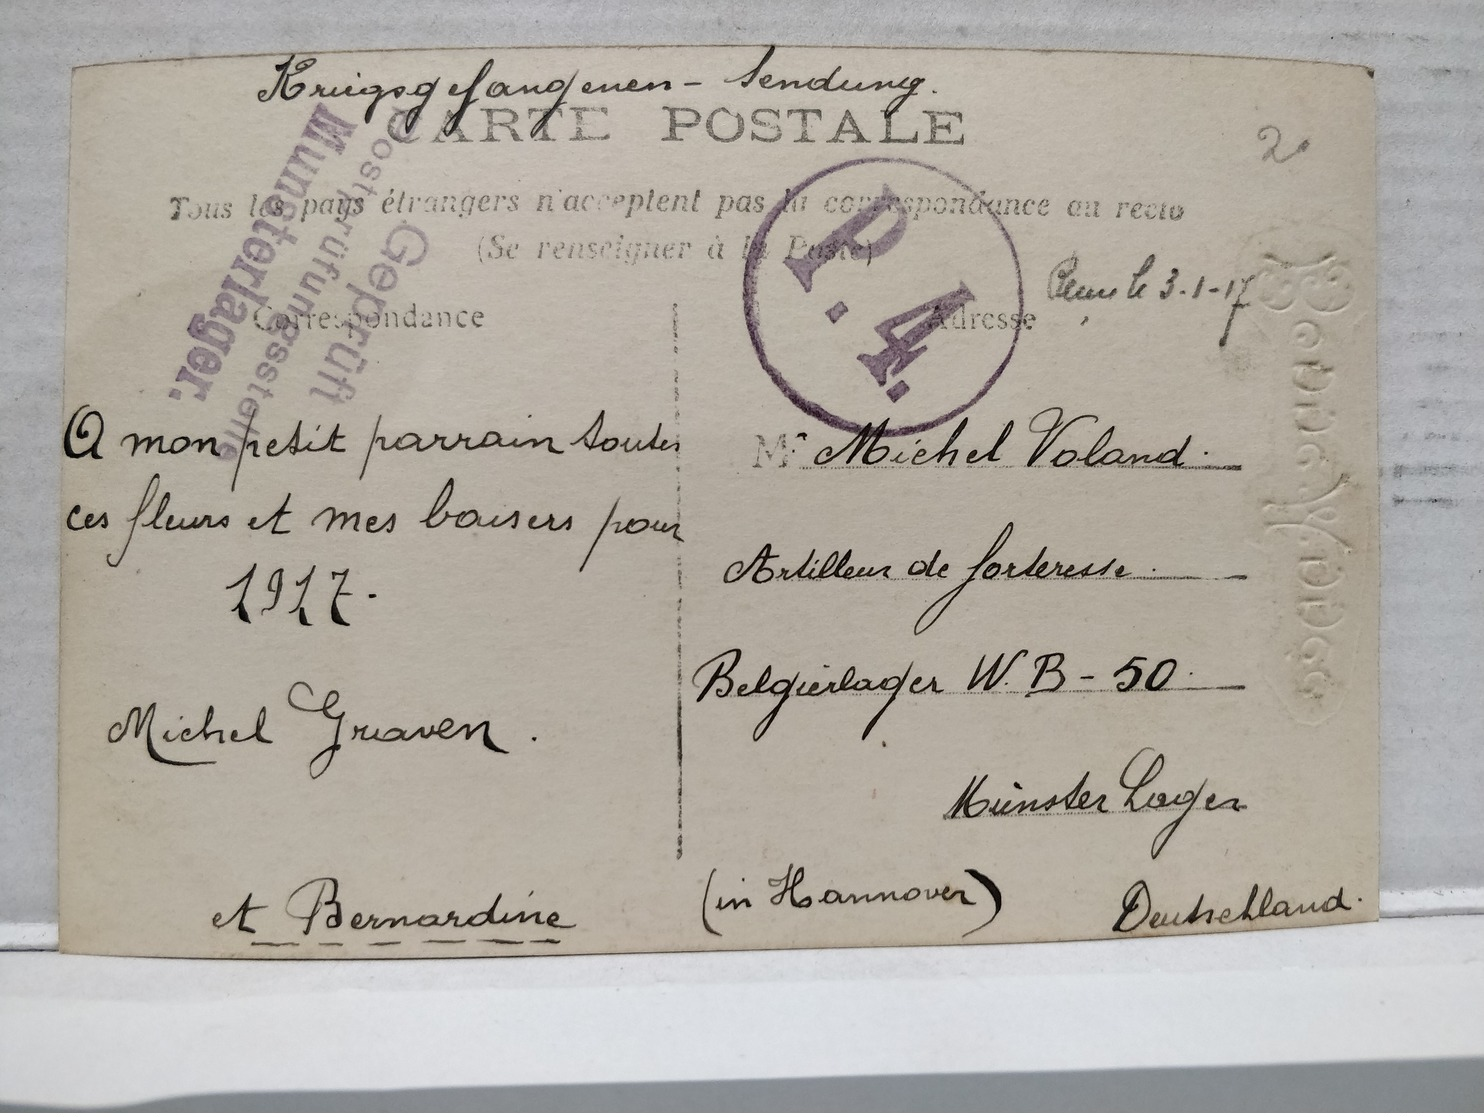 Kriegsgefangenen - Sendung.
CARTE POSTALE
2.
Tous les pays étrangers n'acceptent pas la correspondance au recto
(Se renseigner à la Poste)
Geprüft
Postprüfungsstelle
Munsterlager.
P. 4.
le 3-1-17
Correspondance
Adresse
A mon petit parrain toutes
ces fleurs et mes baisers pour
1917.
Michel Graven.
et Bernardine
Mr Michel Voland.
Artilleur de forteresse.
Belgierlager W. B - 50.
Münster Lager
(in Hannover)
Deutschland.